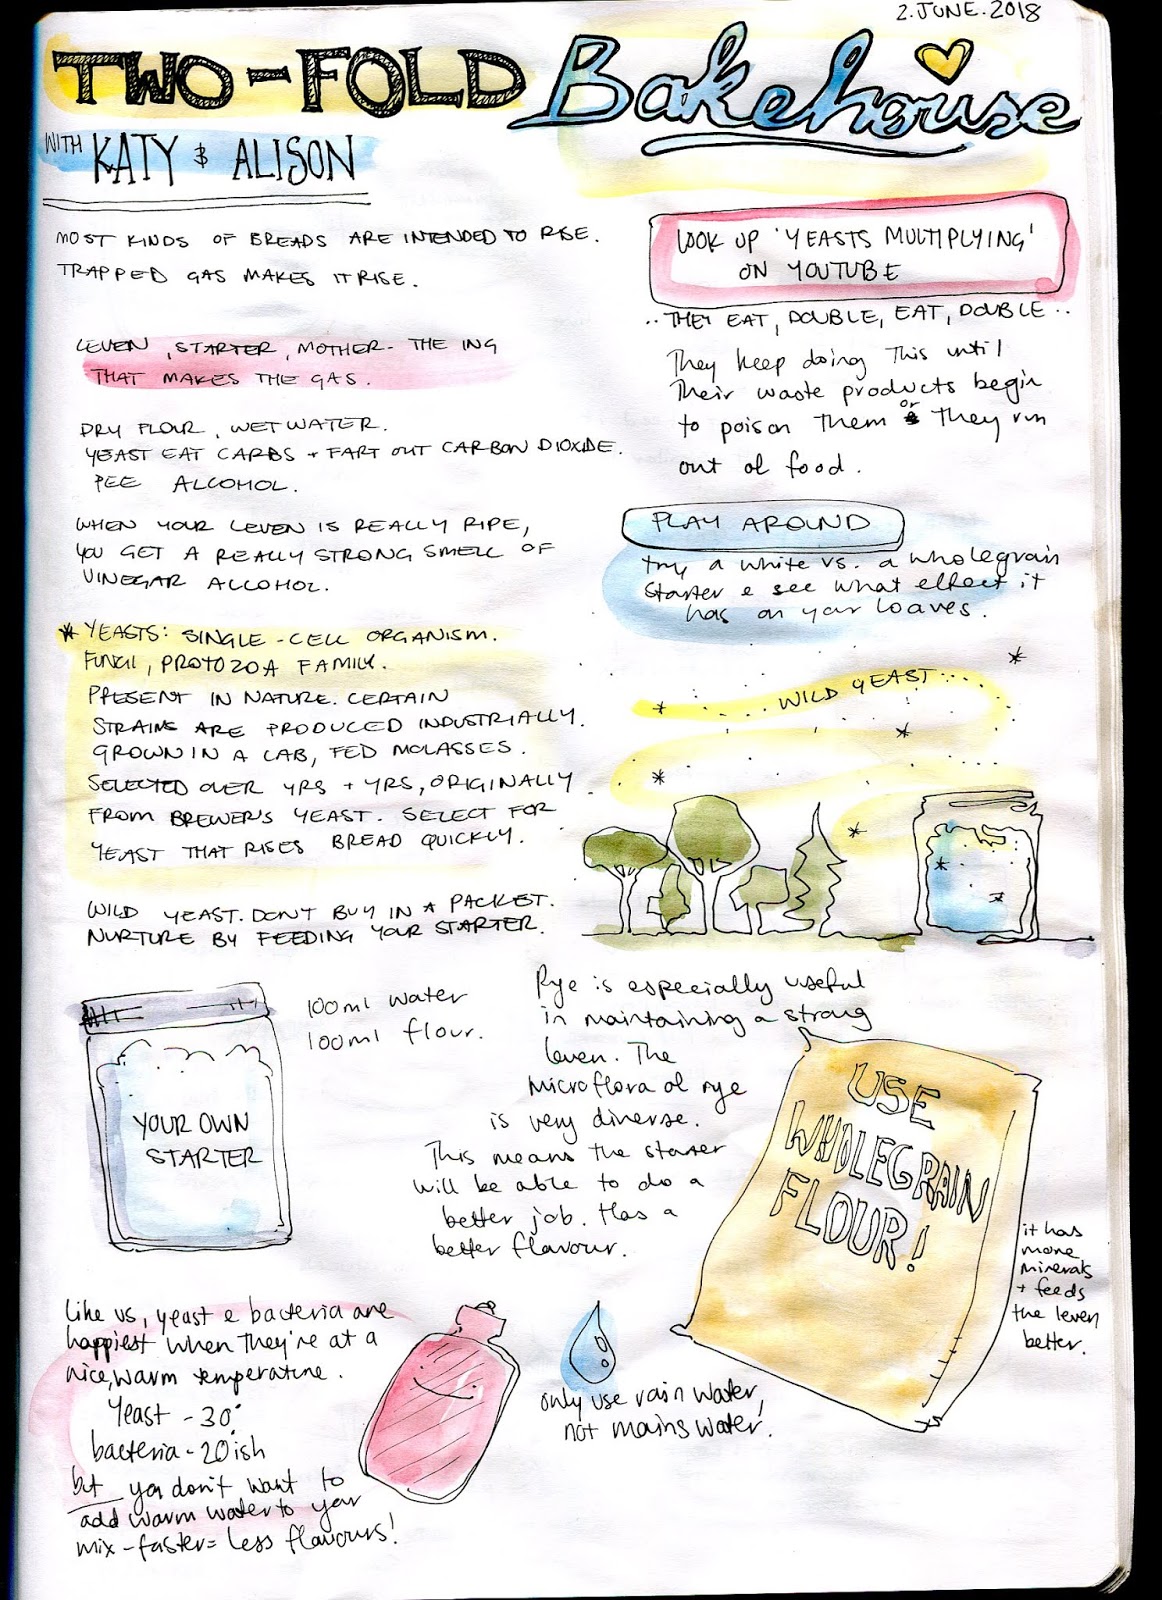 2. JUNE. 2018
TWO-FOLD Bakehouse
WITH KATY & ALISON
MOST KINDS OF BREADS ARE INTENDED TO RISE.
TRAPPED GAS MAKES IT RISE.
LEVEN, STARTER, MOTHER - THE ING
THAT MAKES THE GAS.
DRY FLOUR, WET WATER.
YEAST EAT CARBS + FART OUT CARBON DIOXIDE.
PEE ALCOHOL.
WHEN YOUR LEVEN IS REALLY RIPE,
YOU GET A REALLY STRONG SMELL OF
VINEGAR ALCOHOL.
* YEASTS: SINGLE-CELL ORGANISM.
FUNGI, PROTOZOA FAMILY.
PRESENT IN NATURE. CERTAIN
STRAINS ARE PRODUCED INDUSTRIALLY.
GROWN IN A LAB, FED MOLASSES.
SELECTED OVER YRS + YRS, ORIGINALLY
FROM BREWER'S YEAST. SELECT FOR
YEAST THAT RISES BREAD QUICKLY.
WILD YEAST. DON'T BUY IN A PACKET.
NURTURE BY FEEDING YOUR STARTER.
LOOK UP 'YEASTS MULTIPLYING'
ON YOUTUBE
.. THEY EAT, DOUBLE, EAT, DOUBLE..
They keep doing this until
Their waste products begin
to poison them or they run
out of food.
PLAY AROUND
try a white vs. a wholegrain
starter & see what effect it
has on your loaves.
WILD YEAST...
100ml water
100ml flour.
YOUR OWN
STARTER
Rye is especially useful
in maintaining a strong
leven. The
microflora of rye
is very diverse.
This means the starter
will be able to do a
better job. Has a
better flavour.
USE
WHOLEGRAIN
FLOUR!
it has
more
minerals
+ feeds
the leven
better.
Like us, yeast & bacteria are
happiest when they're at a
nice, warm temperature.
Yeast - 30°
bacteria - 20ish
but you don't want to
add warm water to your
mix - faster = less flavours!
only use rain water,
not mains water.